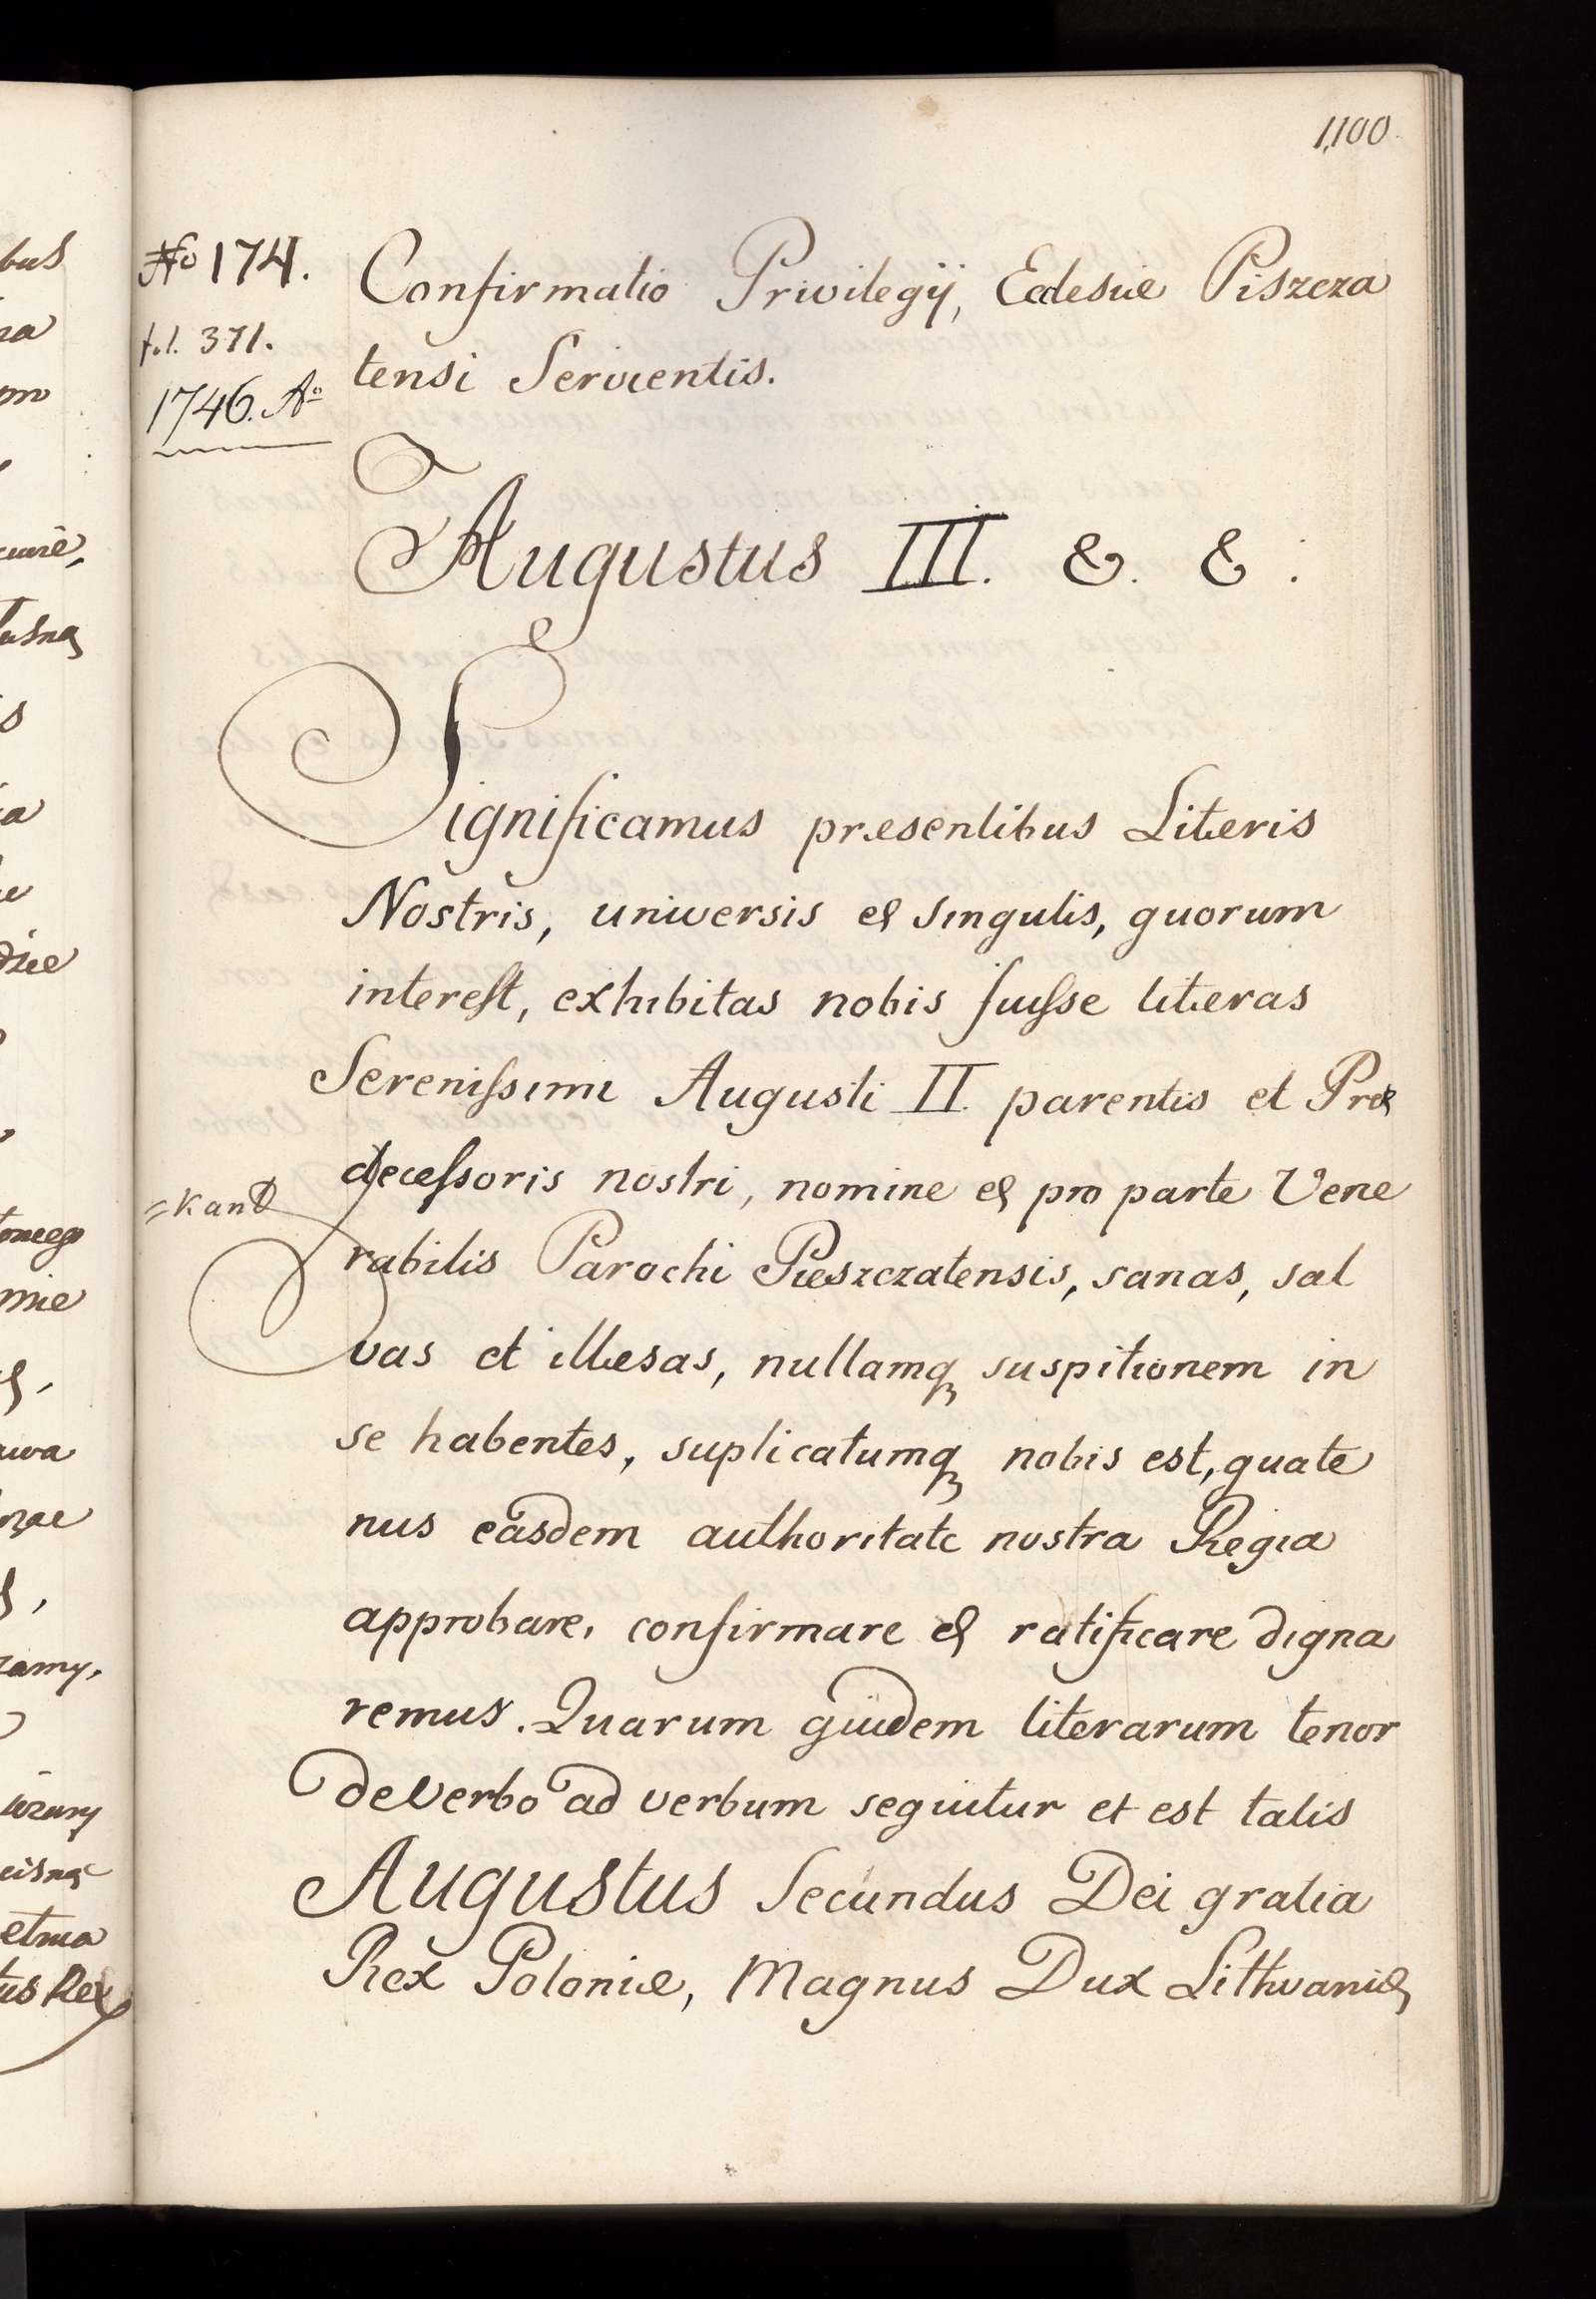 1,100
No 174.
fol. 371.
1746. Ao
Confirmatio Privilegij, Ecclesiæ Piszcza
tensi Servientis.
Augustus III. &. & .
Significamus præsentibus Literis
Nostris, universis et singulis, quorum
interest, exhibitas nobis fuisse literas
Serenissimi Augusti II. parentis et Præ
decessoris nostri, nomine et pro parte Vene
=Kand
rabilis Parochi Pieszczatensis, sanas, sal
vas et illæsas, nullamqꝫ suspitionem in
se habentes, suplicatumqꝫ nobis est, quate
nus easdem authoritate nostra Regia
approbare, confirmare et ratificare digna
remus. Quarum quidem literarum tenor
de Verbo ad verbum sequitur et est talis
Augustus Secundus Dei gratia
Rex Poloniæ, Magnus Dux Lithvaniæ